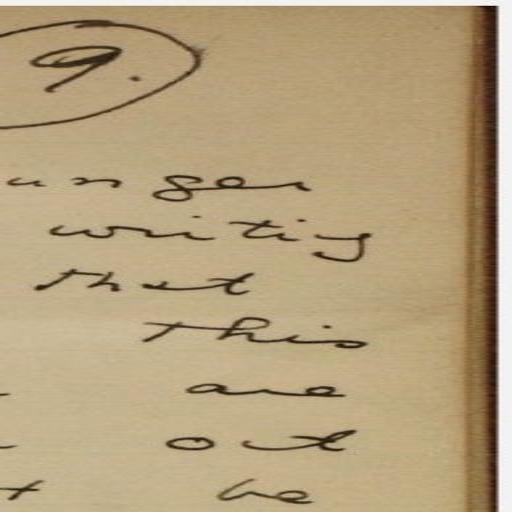 9.
unger
writing
that
this
are
out
be